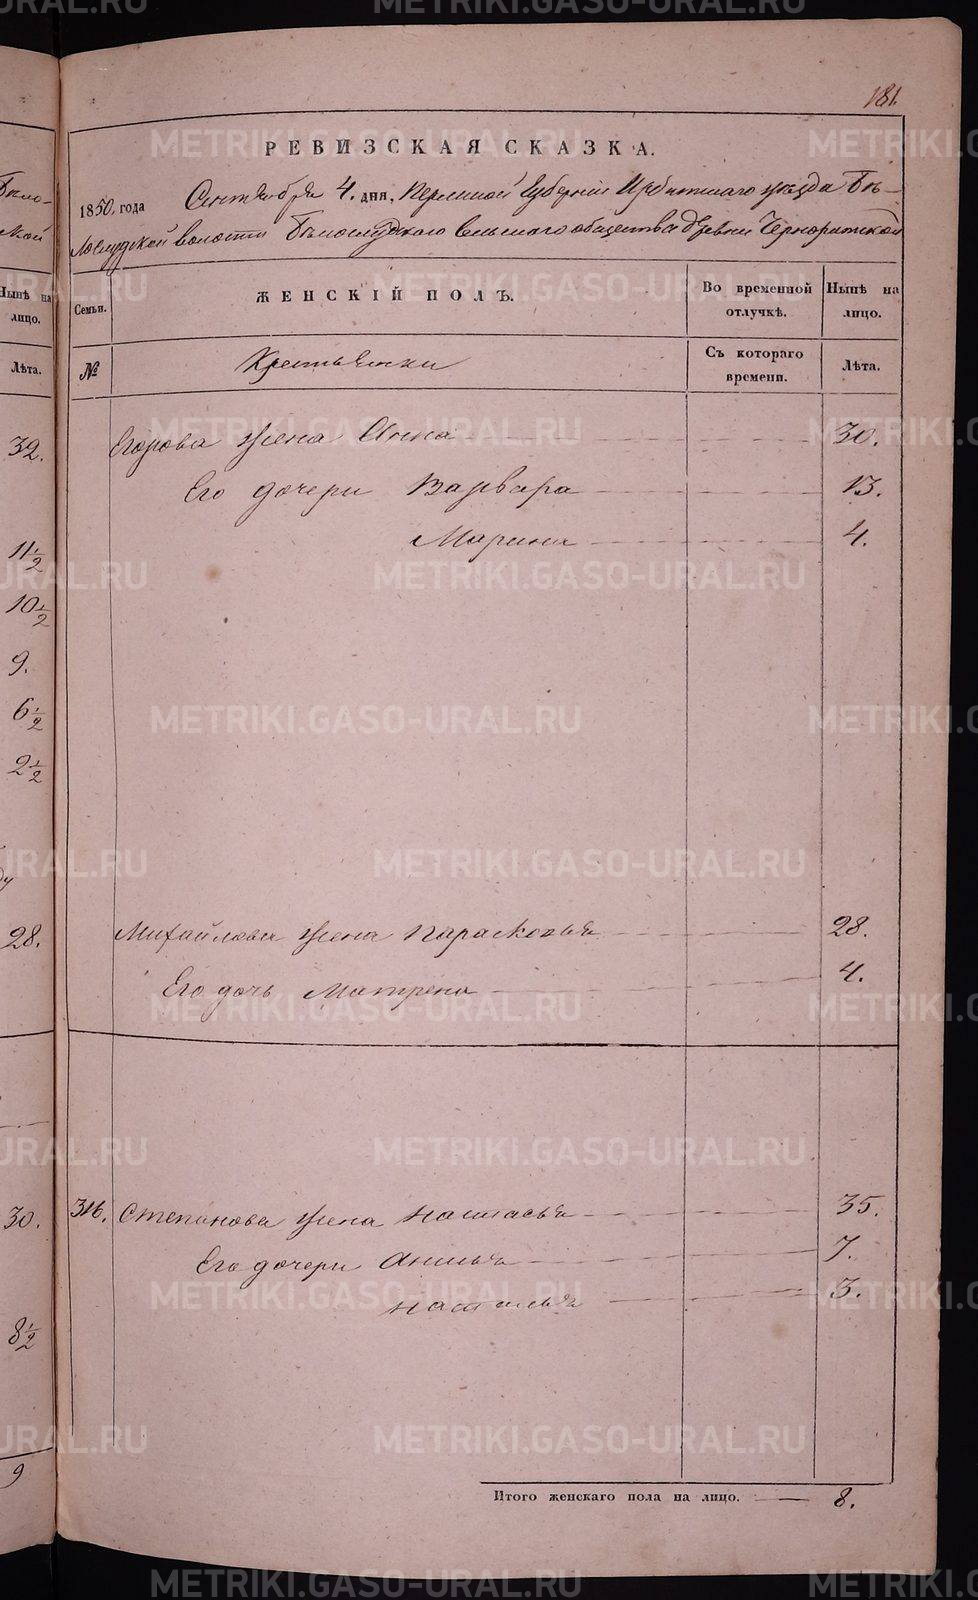 181.
РЕВИЗСКАЯ СКАЗКА.
1850. года Сентября 4. дня, Пермской Губернии Ирбитскаго уѣзда Бѣ-
лослудской волости Бѣлослудскаго сельскаго общества деревни
Семьи.
ЖЕНСКІЙ ПОЛЪ.
Во временной отлучкѣ.
Нынѣ на лицо.
№
Крестьянки
Съ котораго времени.
Лѣта.
Егорова жена Анна 30.
Его дочери Варвара 13.
Марина 4.
Михайлова жена Парасковья 28.
Его дочь Матрена 4.
316. Степанова жена Настасья 35.
Его дочери Анисья 7.
Настасья 3.
Итого женскаго пола на лицо. 8.
Бѣло-
ской
Нынѣ на лицо.
Лѣта.
32.
11 1/2
10 1/2
9.
6 1/2
2 1/2
28.
30.
8 1/2
9
METRIKI.GASO-URAL.RU